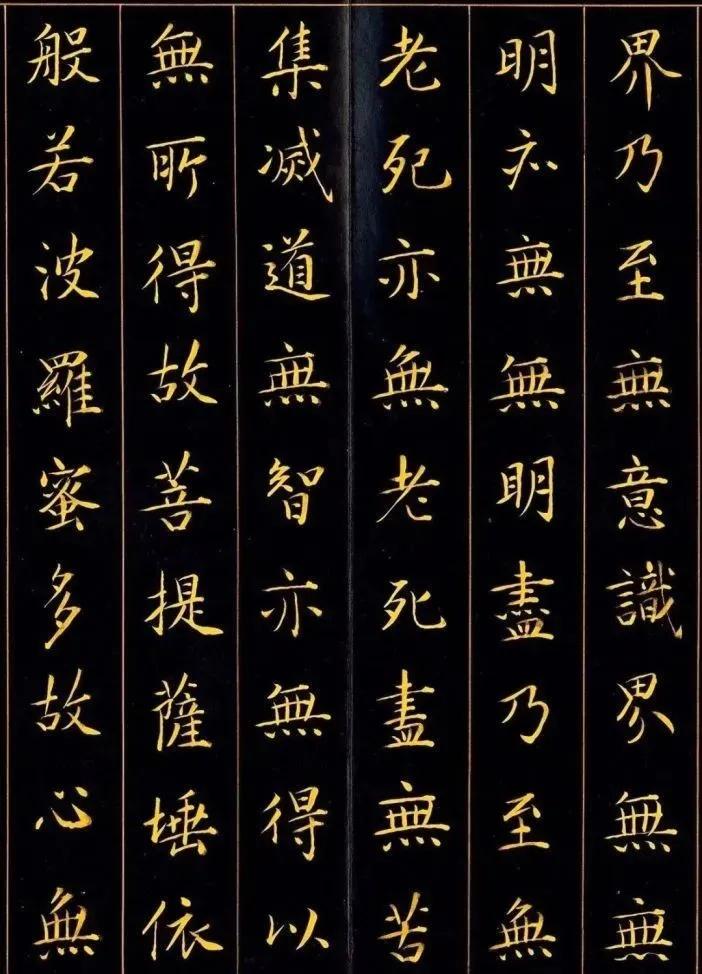 界乃至無意識界無無
明亦無無明盡乃至無
老死亦無老死盡無苦
集滅道無智亦無得以
無所得故菩提薩埵依
般若波羅蜜多故心無